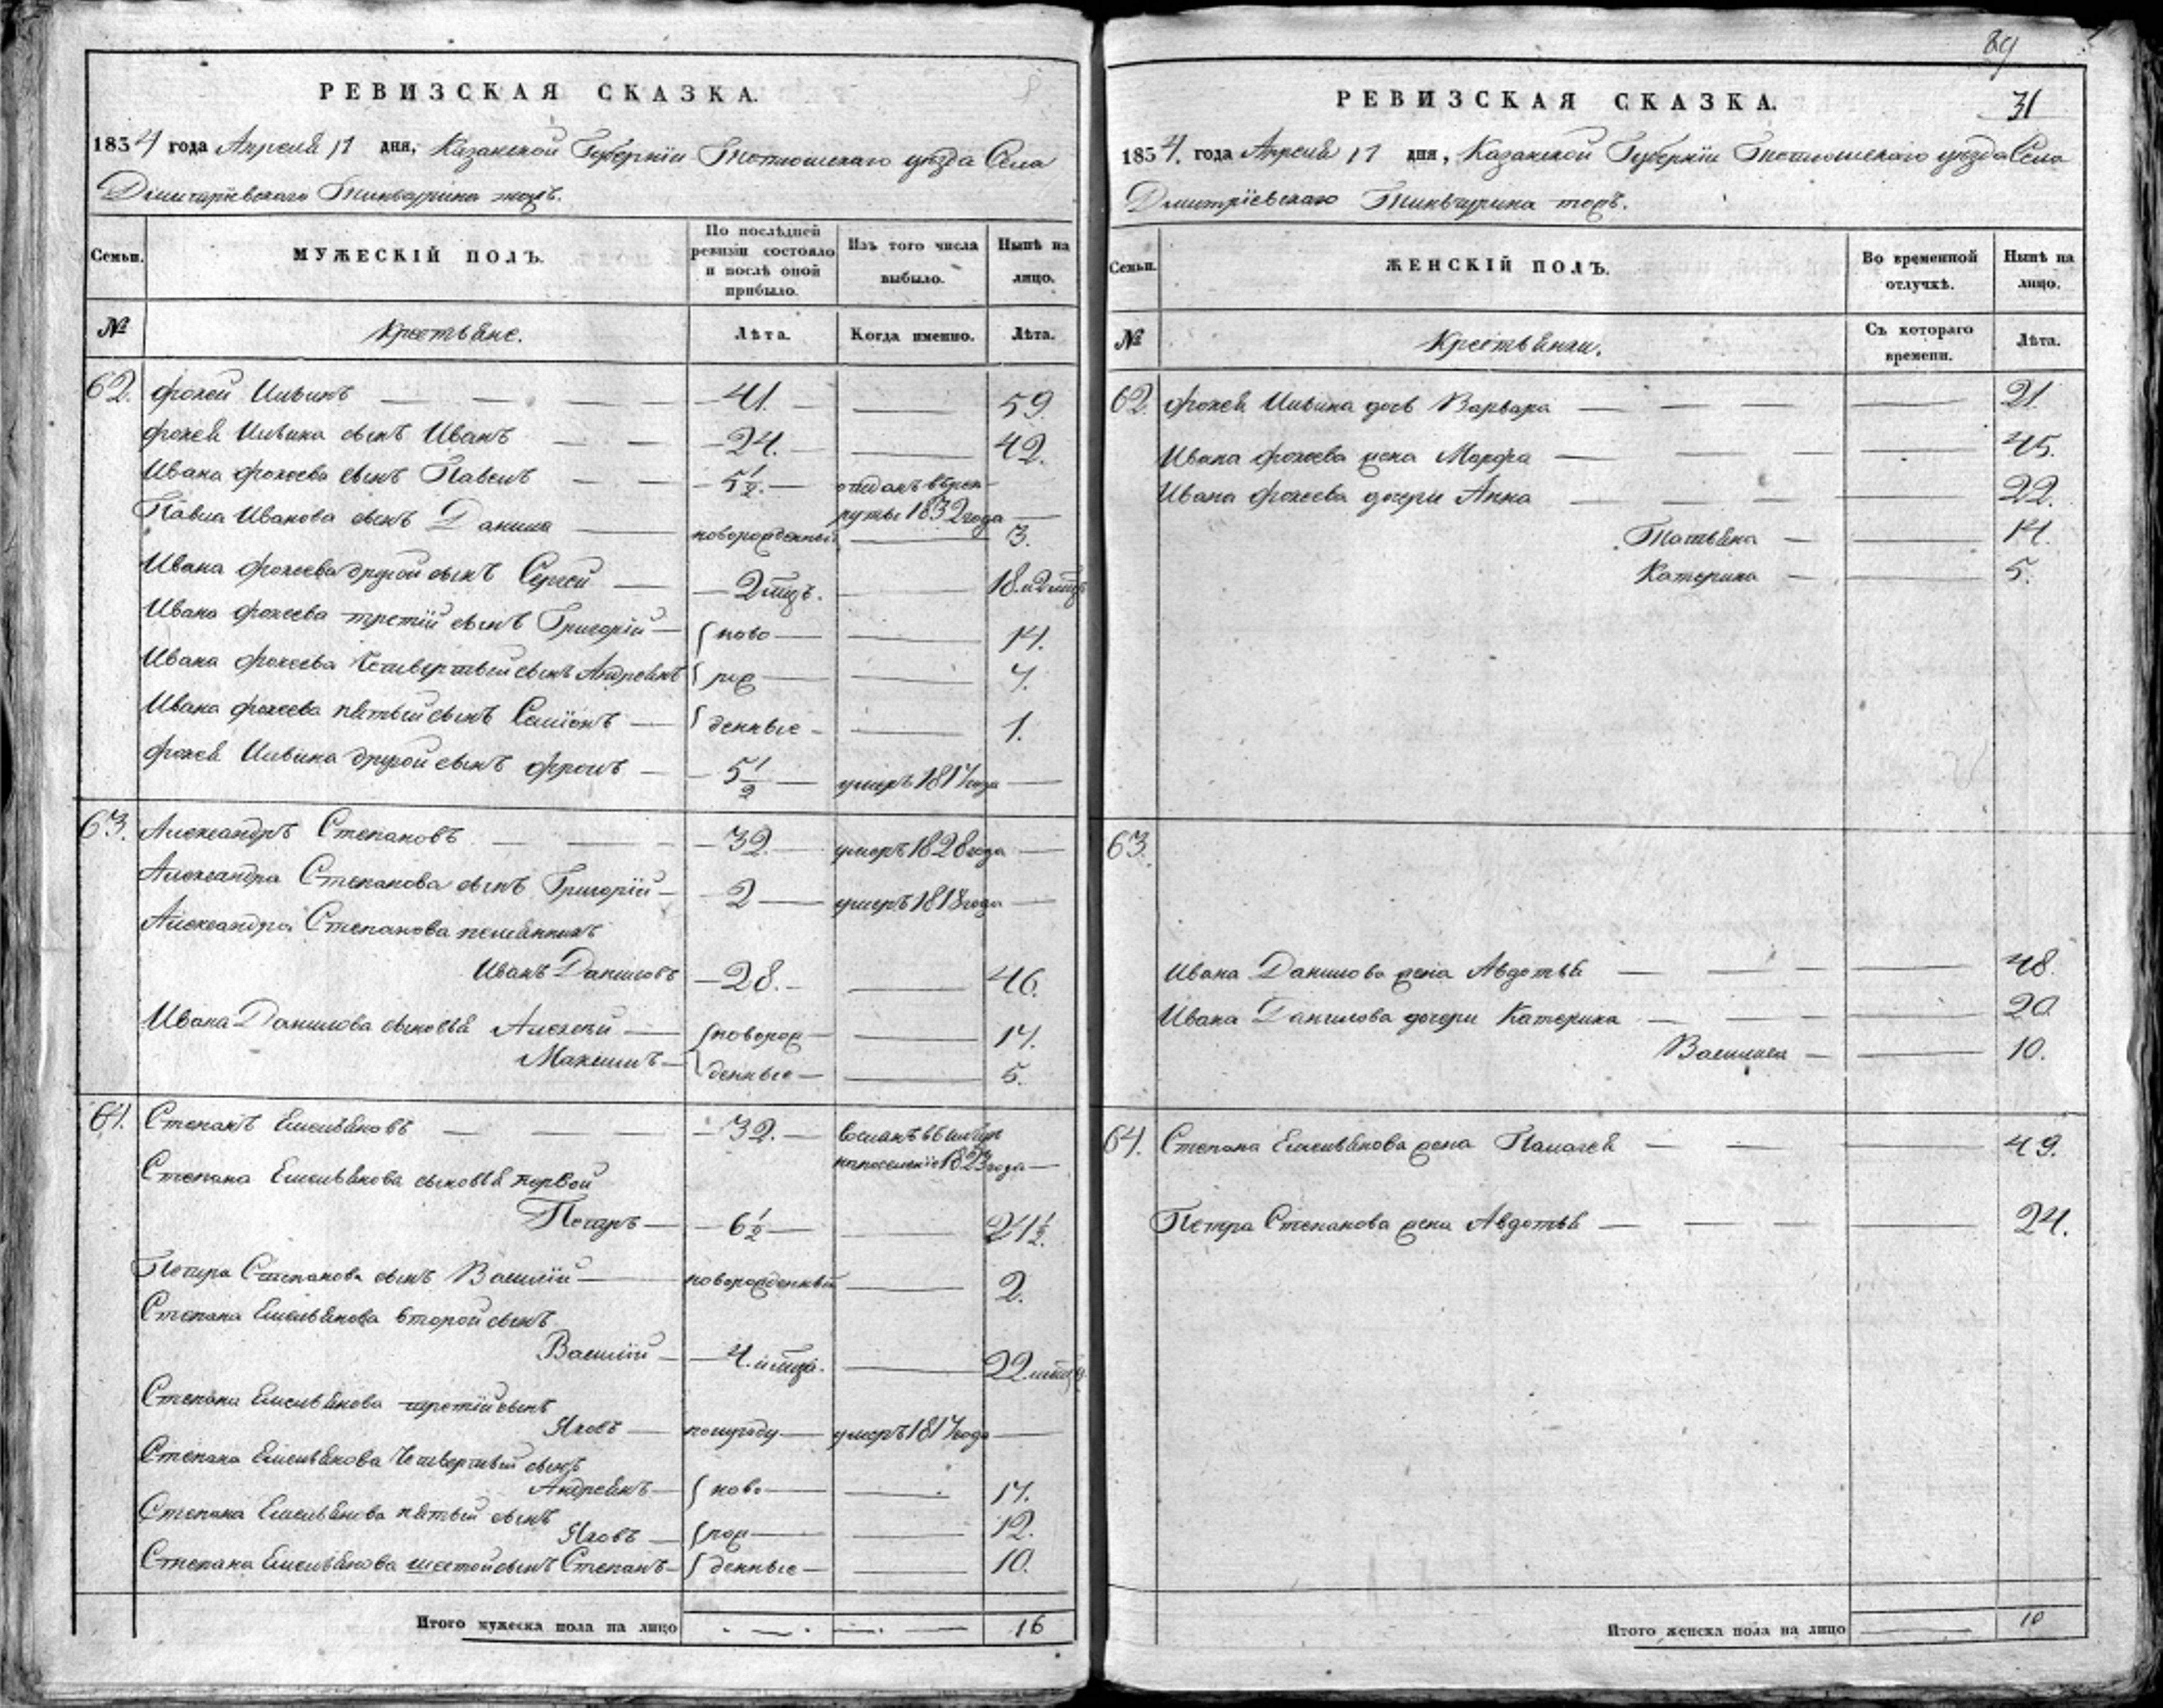 РЕВИЗСКАЯ СКАЗКА.
1834 года Апреля 17 дня, Казанской Губерніи Тетюшскаго уезда Села
Димитріевскаго Тиньчурина тожъ.
Семьи. МУЖЕСКІЙ ПОЛЪ. По послѣдней ревизіи состояло и послѣ оной прибыло. Изъ того числа выбыло. Нынѣ на лицо.
№ Крестьяне. Лѣта. Когда именно. Лѣта.
62. Фокей Ильинъ 41. 59.
Фокея Ильина сынъ Иванъ 24. 42.
Ивана Фокеева сынъ Павелъ 5½. отданъ в рек-
рутъ 1832 года
Павла Иванова сынъ Данила новорожденный 3.
Ивана Фокеева другой сынъ Сергей 2 мцъ. 18 и 2 мцъ
Ивана Фокеева третій сынъ Григорій ново 14.
Ивана Фокеева четвертый сынъ Андреянъ рож 7.
Ивана Фокеева пятый сынъ Семіонъ денные 1.
Фокея Ильина другой сынъ Фролъ 5½ умеръ 1817 года
63. Александръ Степановъ 32 умеръ 1828 года
Александра Степанова сынъ Григорій 2 умеръ 1818 года
Александра Степанова племянникъ
Иванъ Даниловъ 28. 46.
Ивана Данилова сыновья Алексей новорож 14.
Максимъ денные 5.
64. Степанъ Емельяновъ 32. сосланъ в Сибирь
на поселеніе 1823 года
Степана Емельянова сыновья первой
Петръ 6½ 24½.
Петра Степанова сынъ Василій новорожденный 2.
Степана Емельянова второй сынъ
Василій 4. 22
Степана Емельянова третій сынъ
Яковъ полугоду умеръ 1817 года
Степана Емельянова четвертый сынъ
Андреянъ ново 17.
Степана Емельянова пятый сынъ
Яковъ рож 12.
Степана Емельянова шестой сынъ Степанъ денные 10.
Итого мужеска пола на лицо 16
89
31
РЕВИЗСКАЯ СКАЗКА.
1834. года Апреля 17 дня, Казанской Губерніи Тетюшскаго уезда Села
Дмитріевскаго Тиньчурина тожъ.
Семьи. ЖЕНСКІЙ ПОЛЪ. Во временной отлучкѣ. Нынѣ на лицо.
№ Крестьянки. Съ котораго времени. Лѣта.
62. Фокея Ильина дочь Варвара 21.
Ивана Фокеева жена Марфа 45.
Ивана Фокеева дочери Анна 22.
Татьяна 14.
Катерина 5.
63.
Ивана Данилова жена Авдотья 48.
Ивана Данилова дочери Катерина 20.
Василиса 10.
64. Степана Емельянова жена Палагея 49.
Петра Степанова жена Авдотья 24.
Итого женска пола на лицо 10